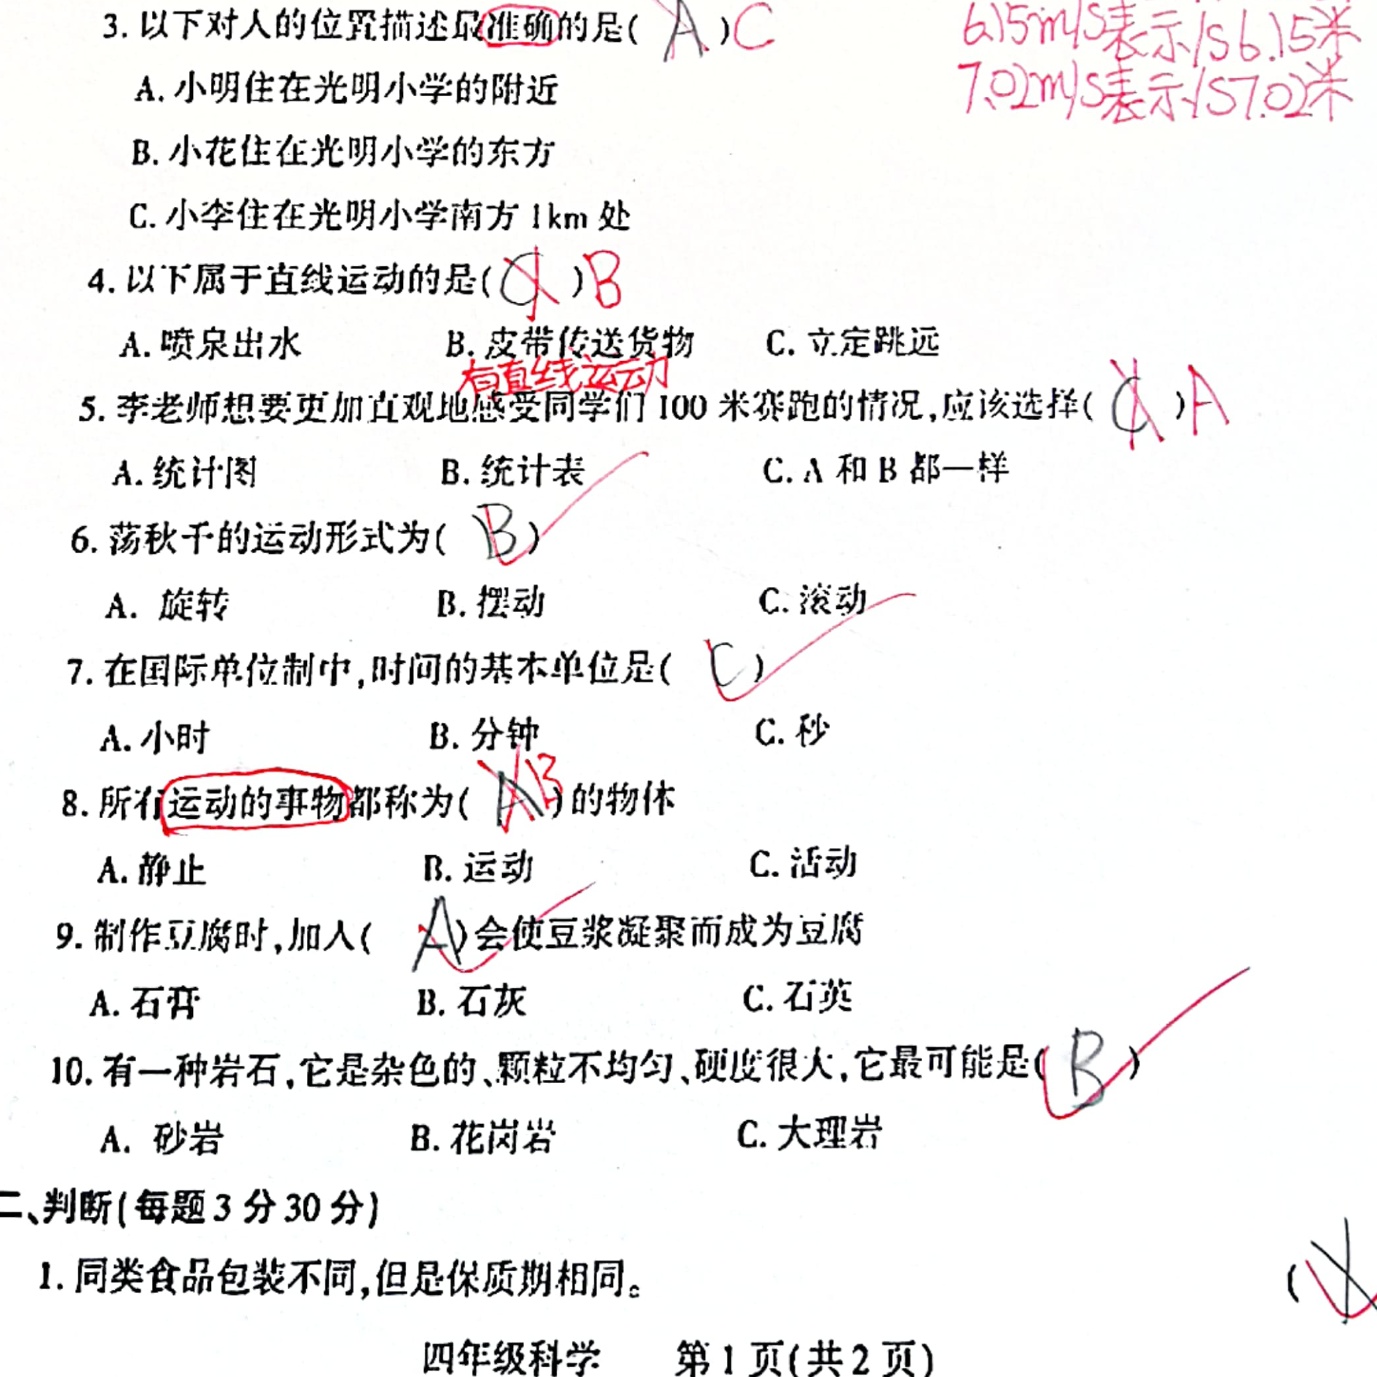 3. 以下对人的位置描述最准确的是( A )C
6.15m/s表示1s6.15米
7.02m/s表示1s7.02米
A. 小明住在光明小学的附近
B. 小花住在光明小学的东方
C. 小李住在光明小学南方 1km 处
4. 以下属于直线运动的是( C )B
A. 喷泉出水 B. 皮带传送货物 C. 立定跳远
有直线运动
5. 李老师想要更加直观地感受同学们 100 米赛跑的情况,应该选择( C )A
A. 统计图 B. 统计表 C. A 和 B 都一样
6. 荡秋千的运动形式为( B )
A. 旋转 B. 摆动 C. 滚动
7. 在国际单位制中,时间的基本单位是( C )
A. 小时 B. 分钟 C. 秒
8. 所有运动的事物都称为( A B )的物体
A. 静止 B. 运动 C. 活动
9. 制作豆腐时,加入( A )会使豆浆凝聚而成为豆腐
A. 石膏 B. 石灰 C. 石英
10. 有一种岩石,它是杂色的、颗粒不均匀、硬度很大,它最可能是( B )
A. 砂岩 B. 花岗岩 C. 大理岩
二、判断(每题 3 分 30 分)
1. 同类食品包装不同,但是保质期相同。 ( ×
四年级科学 第 1 页(共 2 页)